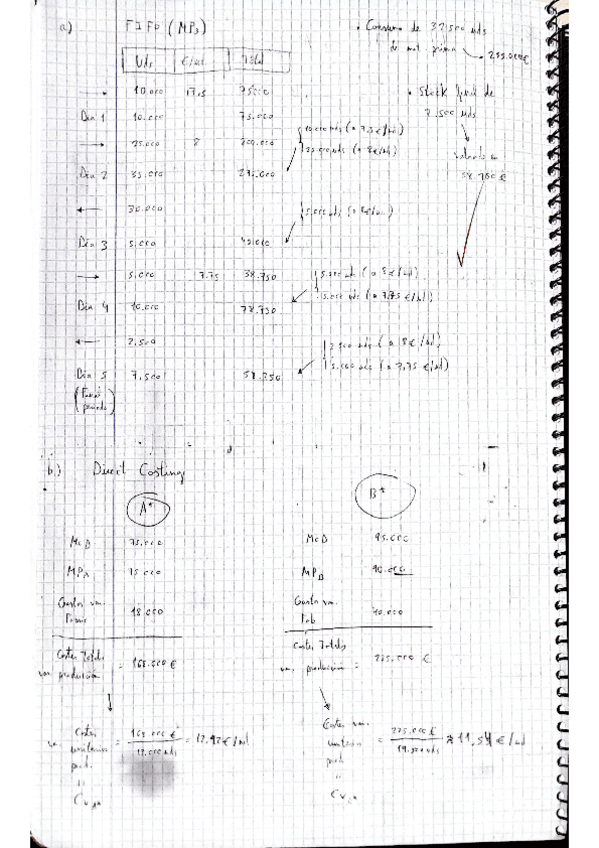 a) FIFO (MPs)
• Consumo de 32.500 uds
de mat. prima → 255.000€
Uds €/ud. Total
→ 10.000 7,5 75000
• Stock final de
7.500 uds
Día 1 10.000 75.000
10.000 uds (a 7,5€/ud)
→ 25.000 8 200.000
25.000 uds (a 8€/ud)
valorado a
58.750 €
Día 2 35.000
← 30.000
5.000 uds (a 8€/ud)
Día 3 5.000 40.000
→ 5.000 7.75 38.750
5.000 uds (a 8€/ud)
5.000 uds (a 7.75 €/ud)
Día 4 10.000 78.750
← 2.500
2.500 uds (a 8€/ud)
Día 5 7.500
5.000 uds (a 7,75 €/ud)
(Final
periodo)
b.) Direct Costing
A* B*
MOD 75.000 MOD 95.000
MPA 75000 MPB 90.000
Gastos va. 18.000
Gastos va.
Fab 40.000
Costes Totales
va. producción = 168.000 €
Costes Totales
va. producción = 225.000 €
Costes
va. unitarios = 168.000 € / 13.000 uds = 12,92€/ud
prod.
"
Cv
Costes va.
unitarios = 225.000€ / 19.500 uds ≈ 11,54 €/ud
prod.
"
Cv